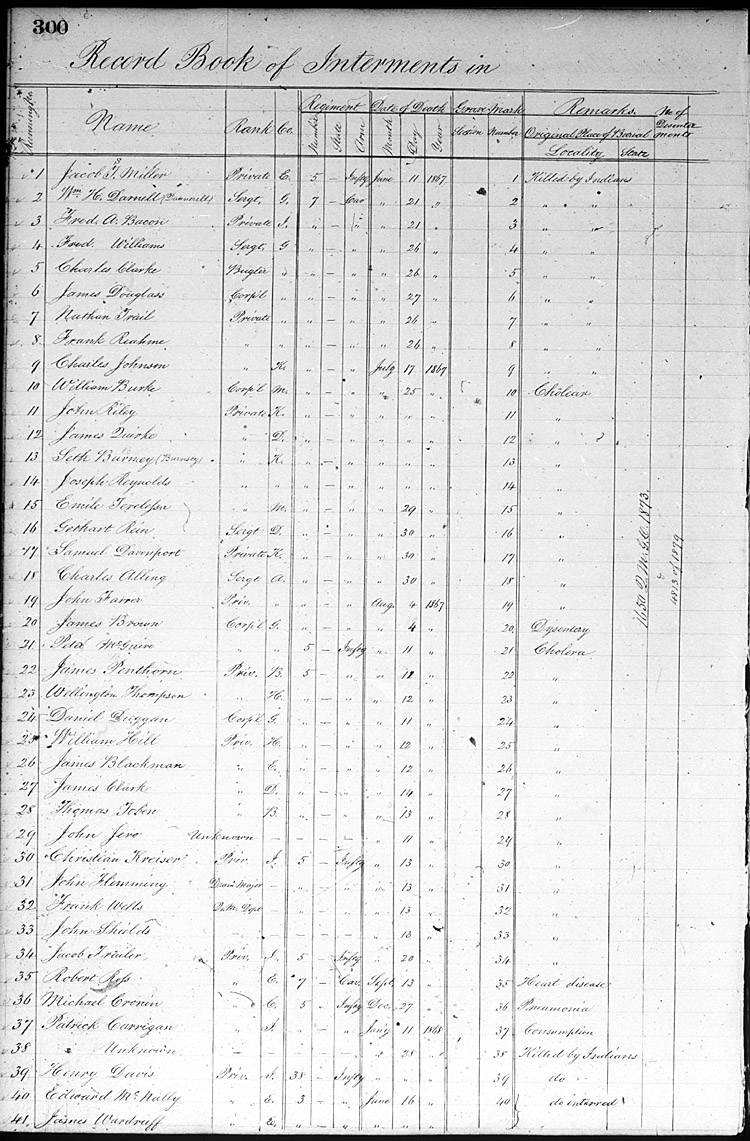 300
Record Book of Interments in
Regiment Date of Death Grave Mark Remarks. No. of Disinterments
Name Rank Co. Number State Arm Month Day Year Section Number Original Place of Burial
Locality State
1 Jacob T. Miller Private E. 5 – Infty June 11 1867 1 Killed by Indians
2 Wm H. Darnell (Dummell) Sergt. G. 7 – Cav " 21 " 2 " " "
3 Fred. A. Bacon Private I. " – " " 21 " 3 " "
4 Fred. Williams Sergt. G " – " " 26 " 4 " "
5 Charles Clarke Bugler " " – " " 26 " 5 " "
6 James Douglass Corpl " " – " " 27 " 6 " "
7 Nathan Trail Private " " – " " 26 " 7 " "
8 Frank Reahme " " " – " " 26 " 8 " "
9 Charles Johnson " K. " – " July 17 1867 9 " "
10 William Burke Corpl M. " – " " 25 " 10 Cholear
11 John Riley Private K. " – " " " " 11 "
12 James Quirke " D. " – " " " " 12 "
13 Seth Burney (Burnsey) " K. " – " " " " 13 "
14 Joseph Reynolds " " " – " " " " 14 "
15 Emile " M. " – " " 29 " 15 "
16 Gethart Rein Sergt D. " – " " 30 " 16 "
17 Samuel Davenport Private K. " – " " 30 " 17 "
18 Charles Alling Sergt A. " – " " 30 " 18 "
19 John Farrer Priv. " " – " Aug. 4 1867 19 "
20 James Brown Corpl G. " – " " 4 " 20 Dysentery
21 Peter McGuire " " 5 – Infty " 11 " 21 Cholera
22 James Penthorn Priv. B. 5 – " " 12 " 22 "
23 Wellington Thompson " H. " – " " 12 " 23 "
24 Daniel Duggan Corpl G. " – " " 11 " 24 "
25 William Hill Priv. H. " – " " 12 " 25 "
26 James Blackman " E. " – " " 12 " 26 "
27 James Clark " D. " – " " 14 " 27 "
28 Thomas Tobin " B. " – " " 13 " 28 "
29 John Jero Unknown – – – – " 11 " 29 "
30 Christian Kreiser Priv. I. 5 – Infty " 13 " 30 "
31 John Hemming Drum Major – " – " " 13 " 31 "
32 Frank Wells Q.M. Dept – – – – " 13 " 32 "
33 John Shields – – – – – " 13 " 33 "
34 Jacob Trailer Priv. I. 5 – Infty " 20 " 34 "
35 Robert Ross " E. 7 – Cav. Sept. 13 " 35 Heart disease
36 Michael Cronin " C. 5 – Infty Dec. 27 " 36 Pneumonia
37 Patrick Carrigan " I. " – " Jany 11 1868 37 Consumption
38 " Unknown – – – – – " 28 " 38 Killed by Indians
39 Henry Davis Priv. I. 38 – Infty " 39 do
40 Edward McNally " E. 3 – " June 16 " 40 do interred
41. James Wardruff " E.
1650 Q.M.G.O. 1873.
4813 of 1879